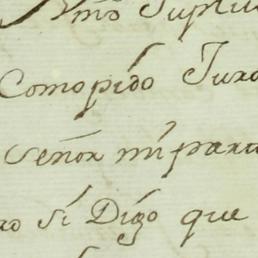 Ylmo Suplic
Como pido Jura
Señor mi parte
ro si Digo que